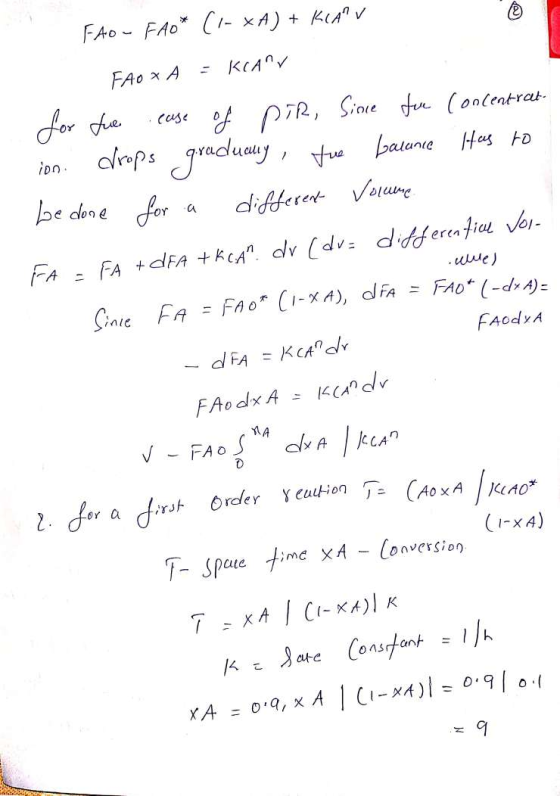 ②
FAO - FAO* (1- XA) + KCAⁿ V
FAO XA = KCAⁿV
for the case of PTR, Since the Concentrat-
ion. drops gradually, the balance Has to
be done for a different Volume
FA = FA + dFA + KCAⁿ. dv (dv = differential Vol-
ume)
Since FA = FAO* (1-XA), dFA = FAO* (-dXA)=
FAOdXA
- dFA = KCAⁿdv
FAOdXA = KCAⁿdv
V - FAO ∫₀ˣᴬ dXA / KCAⁿ
2. for a first Order reaction T = CAOXA / KCAO*
(1-XA)
T- Space time XA - Conversion
T = XA / (1-XA) / K
K = Rate Constant = 1/h
XA = 0.9, XA / (1-XA) / = 0.9 / 0.1
= 9